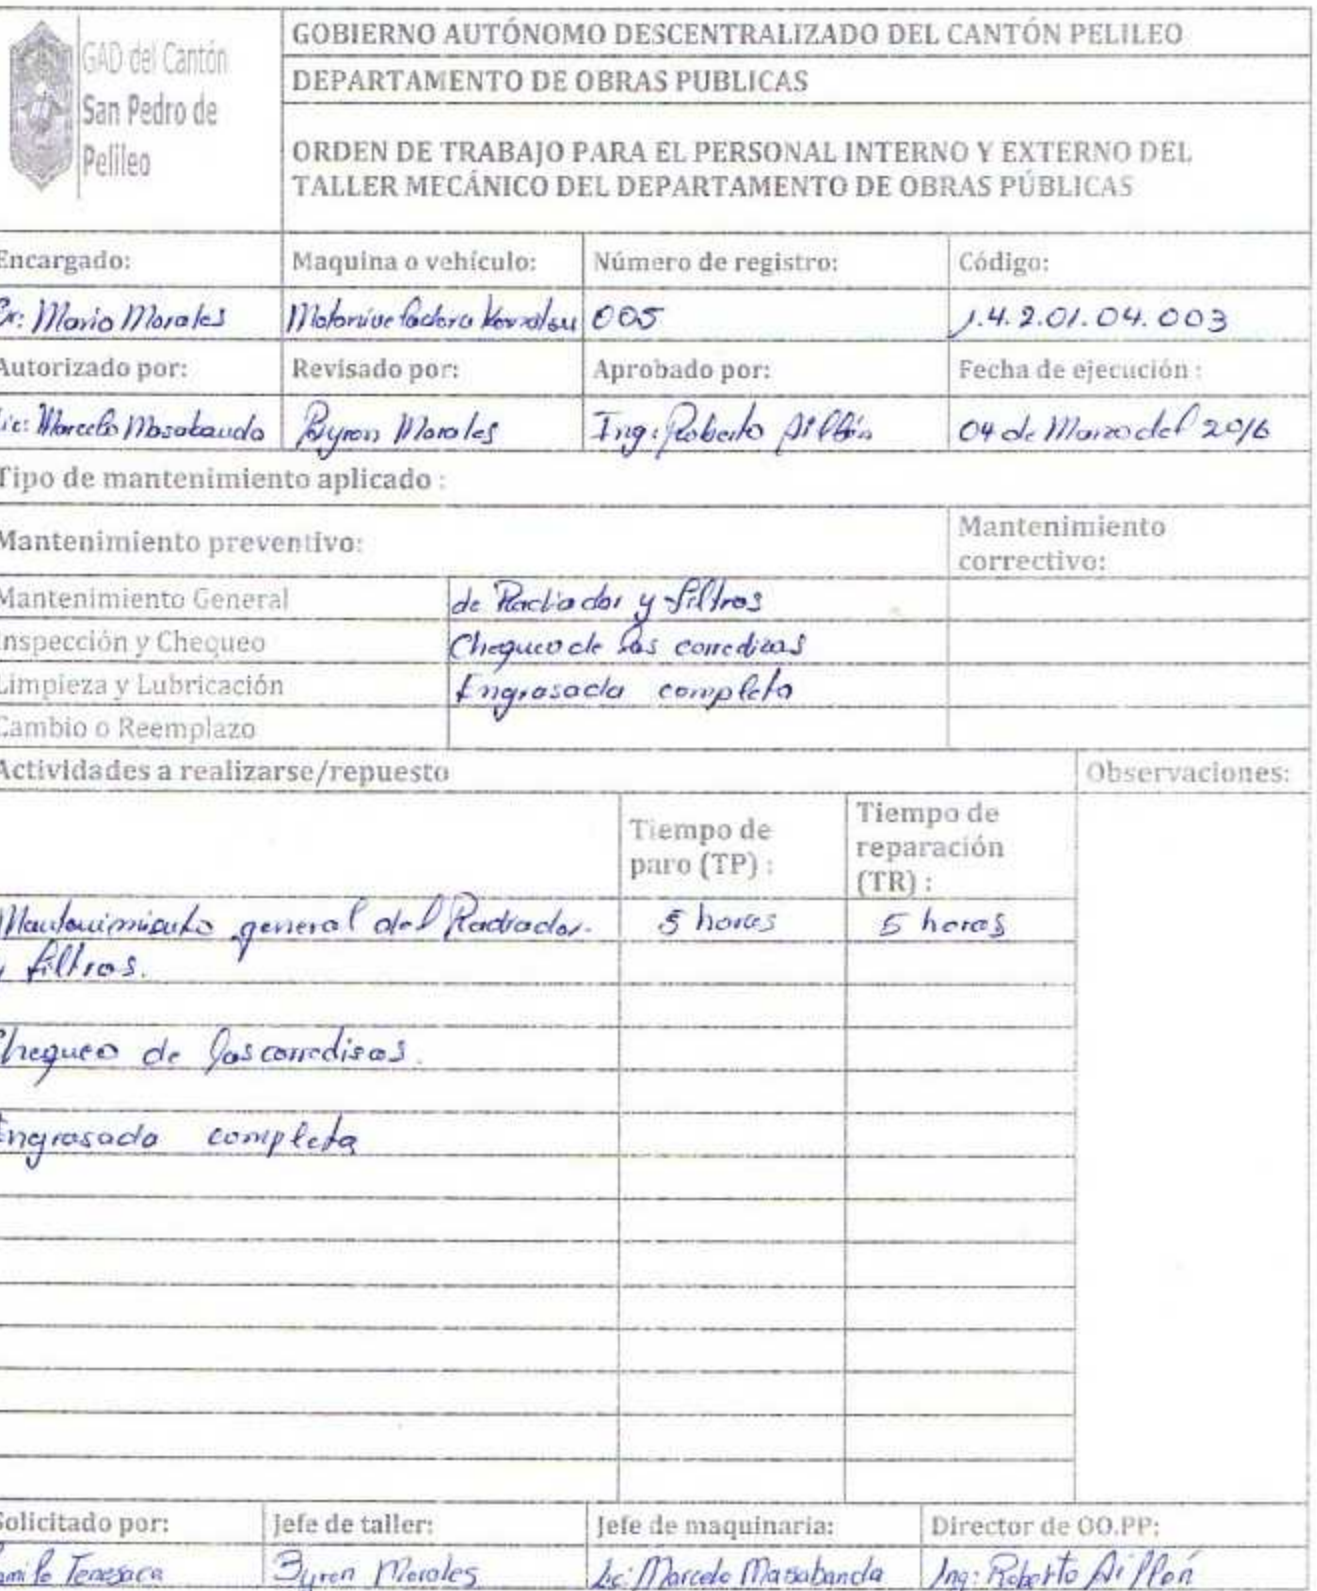 GAD del Cantón
San Pedro de
Pelileo
GOBIERNO AUTÓNOMO DESCENTRALIZADO DEL CANTÓN PELILEO
DEPARTAMENTO DE OBRAS PUBLICAS
ORDEN DE TRABAJO PARA EL PERSONAL INTERNO Y EXTERNO DEL
TALLER MECÁNICO DEL DEPARTAMENTO DE OBRAS PÚBLICAS
Encargado: Maquina o vehículo: Número de registro: Código:
Sr: Mario Morales Motoniveladora 005 1.4.2.01.04.003
Autorizado por: Revisado por: Aprobado por: Fecha de ejecución :
Lic: Marcelo Masabanda Byron Morales Ing: Roberto Aillón 04 de Marzo del 2016
Tipo de mantenimiento aplicado :
Mantenimiento preventivo: Mantenimiento
correctivo:
Mantenimiento General de Radiador y filtros
Inspección y Chequeo Chequeo de las corredizas
Limpieza y Lubricación Engrasada completa
Cambio o Reemplazo
Actividades a realizarse/repuesto Observaciones:
Tiempo de
paro (TP) :
Tiempo de
reparación
(TR) :
Mantenimiento general del Radiador. 5 horas 5 horas
y filtros.
Chequeo de las corredisas.
Engrasada completa
Solicitado por: Jefe de taller: Jefe de maquinaria: Director de OO.PP:
Camilo Tenesaca Byron Morales Lic: Marcelo Masabanda Ing: Roberto Aillón